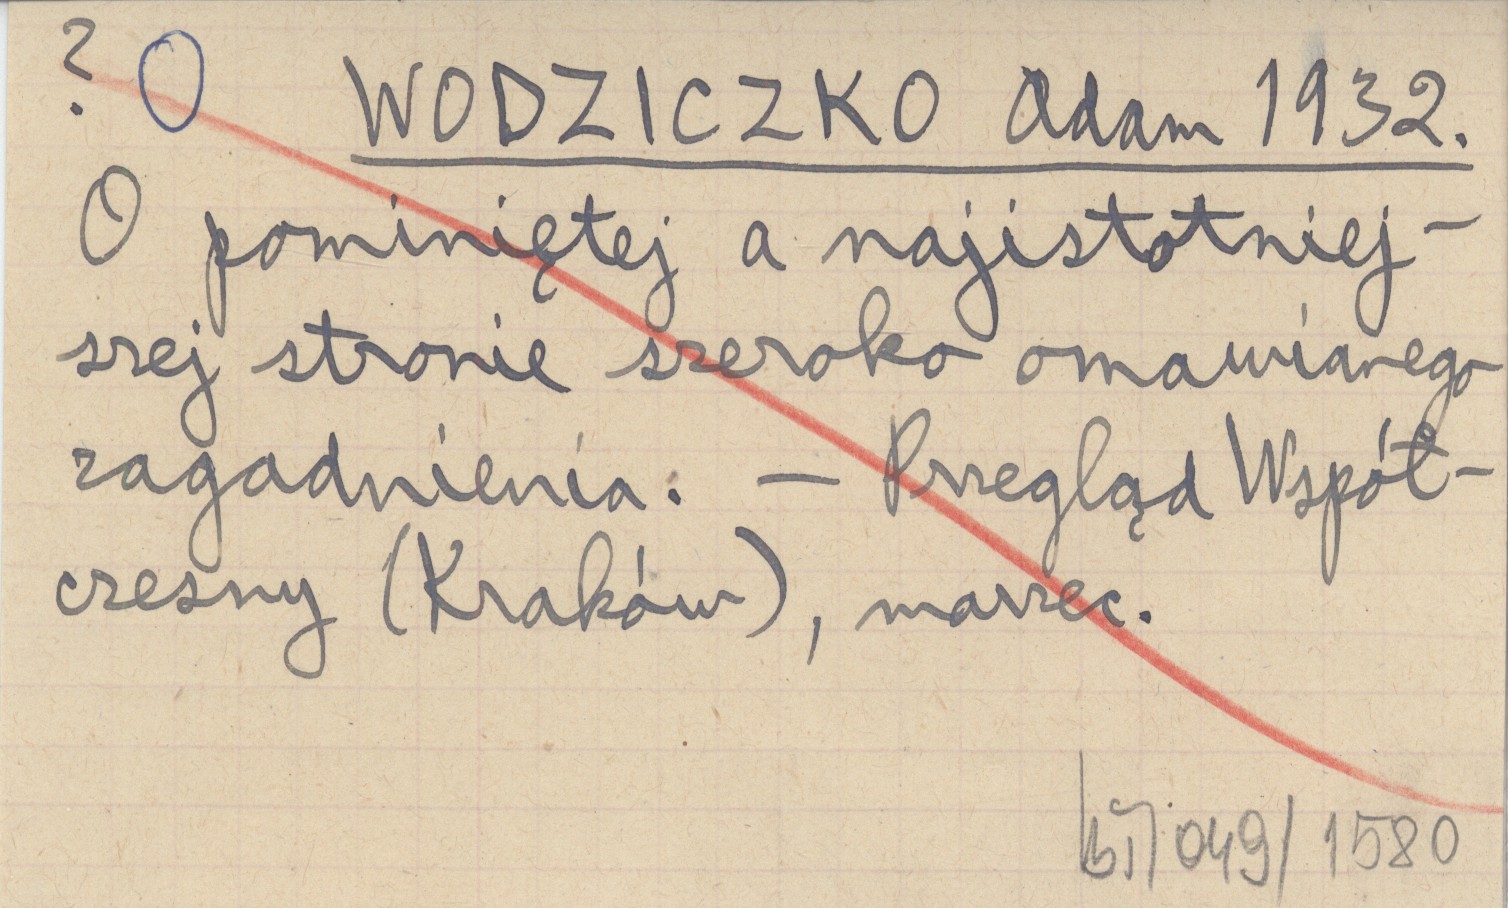 ? O WODZICZKO Adam 1932.
O pominiętej a najistotniej-
szej stronie szeroko omawianego
zagadnienia. — Przegląd Współ-
czesny (Kraków), marzec.
049/1580